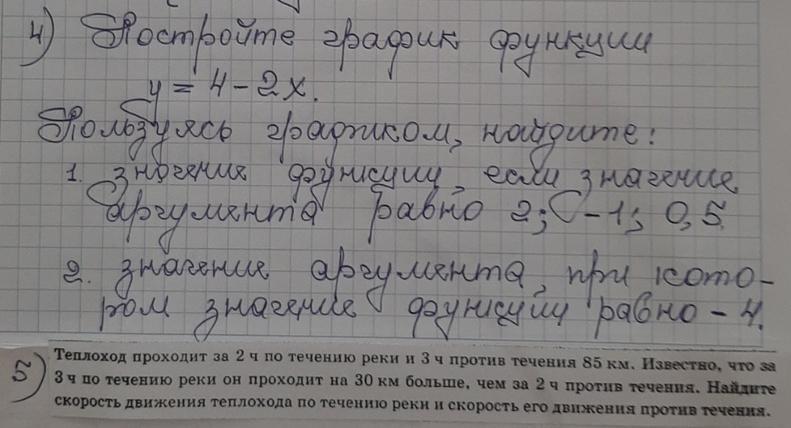 4) Постройте график функции
y = 4 - 2x.
Пользуясь графиком, найдите:
1. значение функции, если значение
аргумента равно 2; -1; 0,5.
2. значение аргумента, при кото-
ром значение функции равно - 4.
5) Теплоход проходит за 2 ч по течению реки и 3 ч против течения 85 км. Известно, что за
3 ч по течению реки он проходит на 30 км больше, чем за 2 ч против течения. Найдите
скорость движения теплохода по течению реки и скорость его движения против течения.